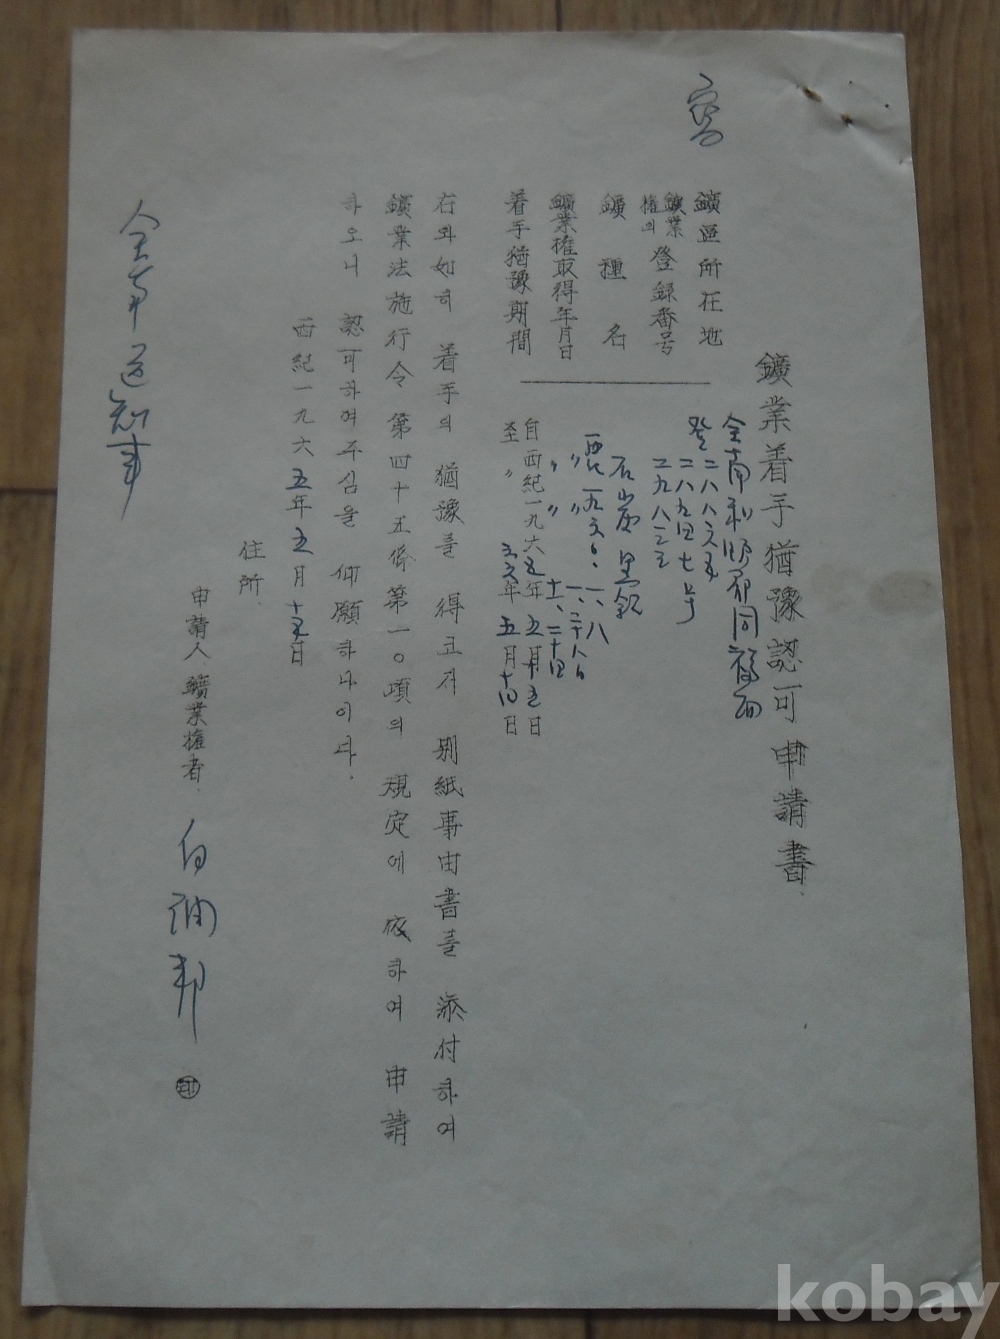 鑛業着手猶豫認可申請書
鑛區所在地
全南和順郡同福面
鑛業權의 登録番号
登二八八六五
二八九四七号
二九八三三
鑛種名
石炭 黑鉛
鑛業權取得年月日
着手猶豫期間
自西紀一九六五年五月五日
至〃 六六年五月十四日
右와如히 着手의 猶豫를 得코저 別紙事由書를 添付하여
鑛業法施行令第四十五條第一0項의 規定에 依하여 申請
하오니 認可하여주심을 仰願하나이다.
西紀一九六五年五月十五日
住所.
申請人.鑛業權者. 白 邦 印
全南道知事
kobay